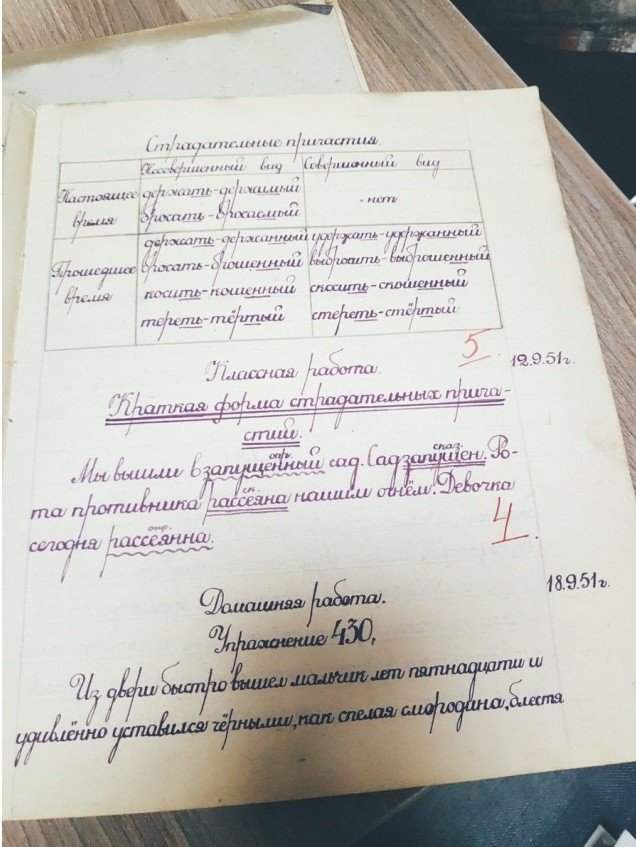 Страдательные причастия.
Несовершенный вид Совершенный вид
Настоящее время
держать-держимый
бросать-бросаемый
нет
Прошедшее время
держать-держанный удержать-удержанный
бросать-брошенный выбросить-выброшенный
косить-кошенный скосить-скошенный
тереть-тёртый стереть-стёртый
5
12.9.51г.
Классная работа.
Краткая форма страдательных прича-
стий.
опр. сказ.
Мы вышли в запущенный сад. Сад запущен. Ро-
ск.
та противника рассеяна нашим огнём. Девочка
опр.
сегодня рассеянна.
4.
18.9.51г.
Домашняя работа.
Упражнение 430,
Из двери быстро вышел мальчик лет пятнадцати и
удивлённо уставился чёрными, как спелая смородана, блестя